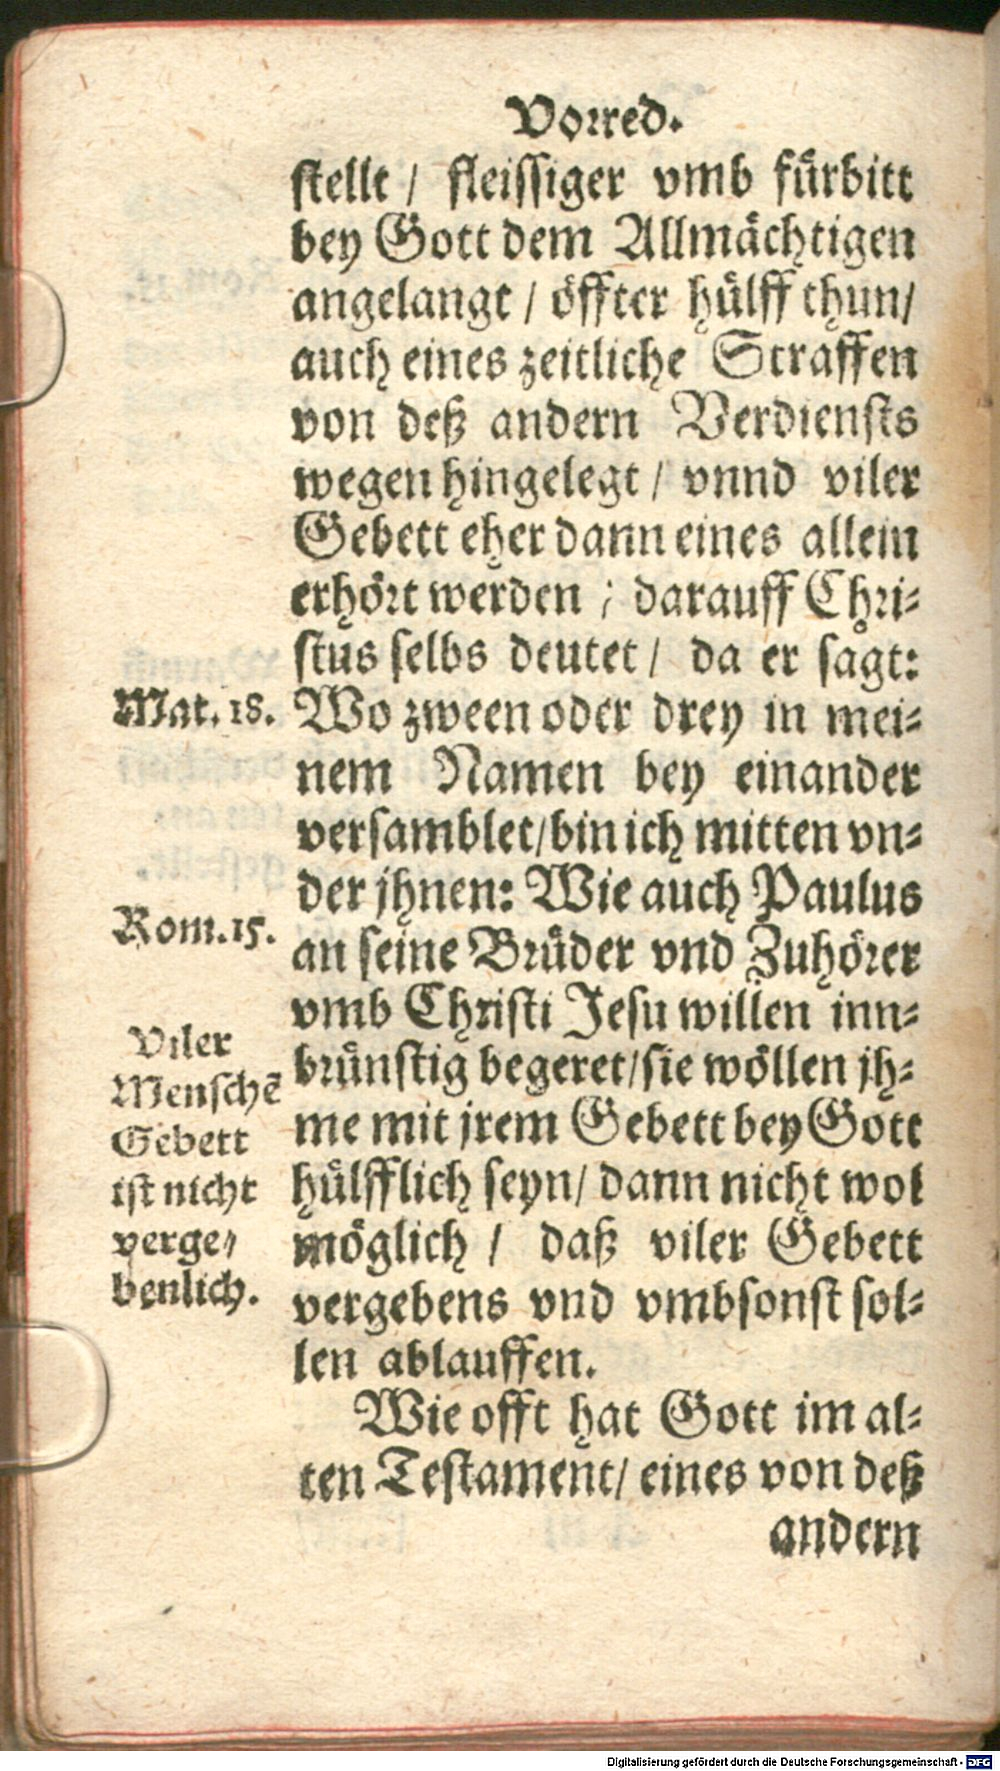 Vorred.
stellt / fleissiger vmb fürbitt
bey Gott dem Allmächtigen
angelangt / öffter hülff thun/
auch eines zeitliche Straffen
von deß andern Verdiensts
wegen hingelegt / vnnd viler
Gebett eher dann eines allein
erhört werden ; darauff Chri-
stus selbs deutet / da er sagt:
Mat. 18.
Wo zween oder drey in mei-
nem Namen bey einander
versamblet/bin ich mitten vn-
der jhnen: Wie auch Paulus
Rom. 15.
an seine Brüder vnd Zuhörer
vmb Christi Jesu willen inn-
brünstig begeret/sie wöllen jh-
me mit jrem Gebett bey Gott
hülfflich seyn/ dann nicht wol
möglich / daß viler Gebett
vergebens vnd vmbsonst sol-
len ablauffen.
Viler
Menschē
Gebett
ist nicht
verge-
benlich.
Wie offt hat Gott im al-
ten Testament/ eines von deß
andern
Digitalisierung gefördert durch die Deutsche Forschungsgemeinschaft - DFG